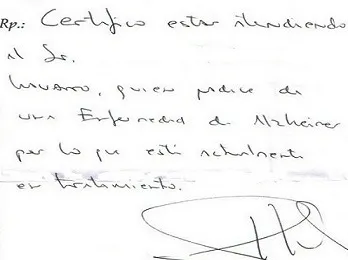 Rp.: Certifico estar atendiendo
al Sr.
quien padece de
una Enfermedad de Alzheimer
por lo que está actualmente
en tratamiento.